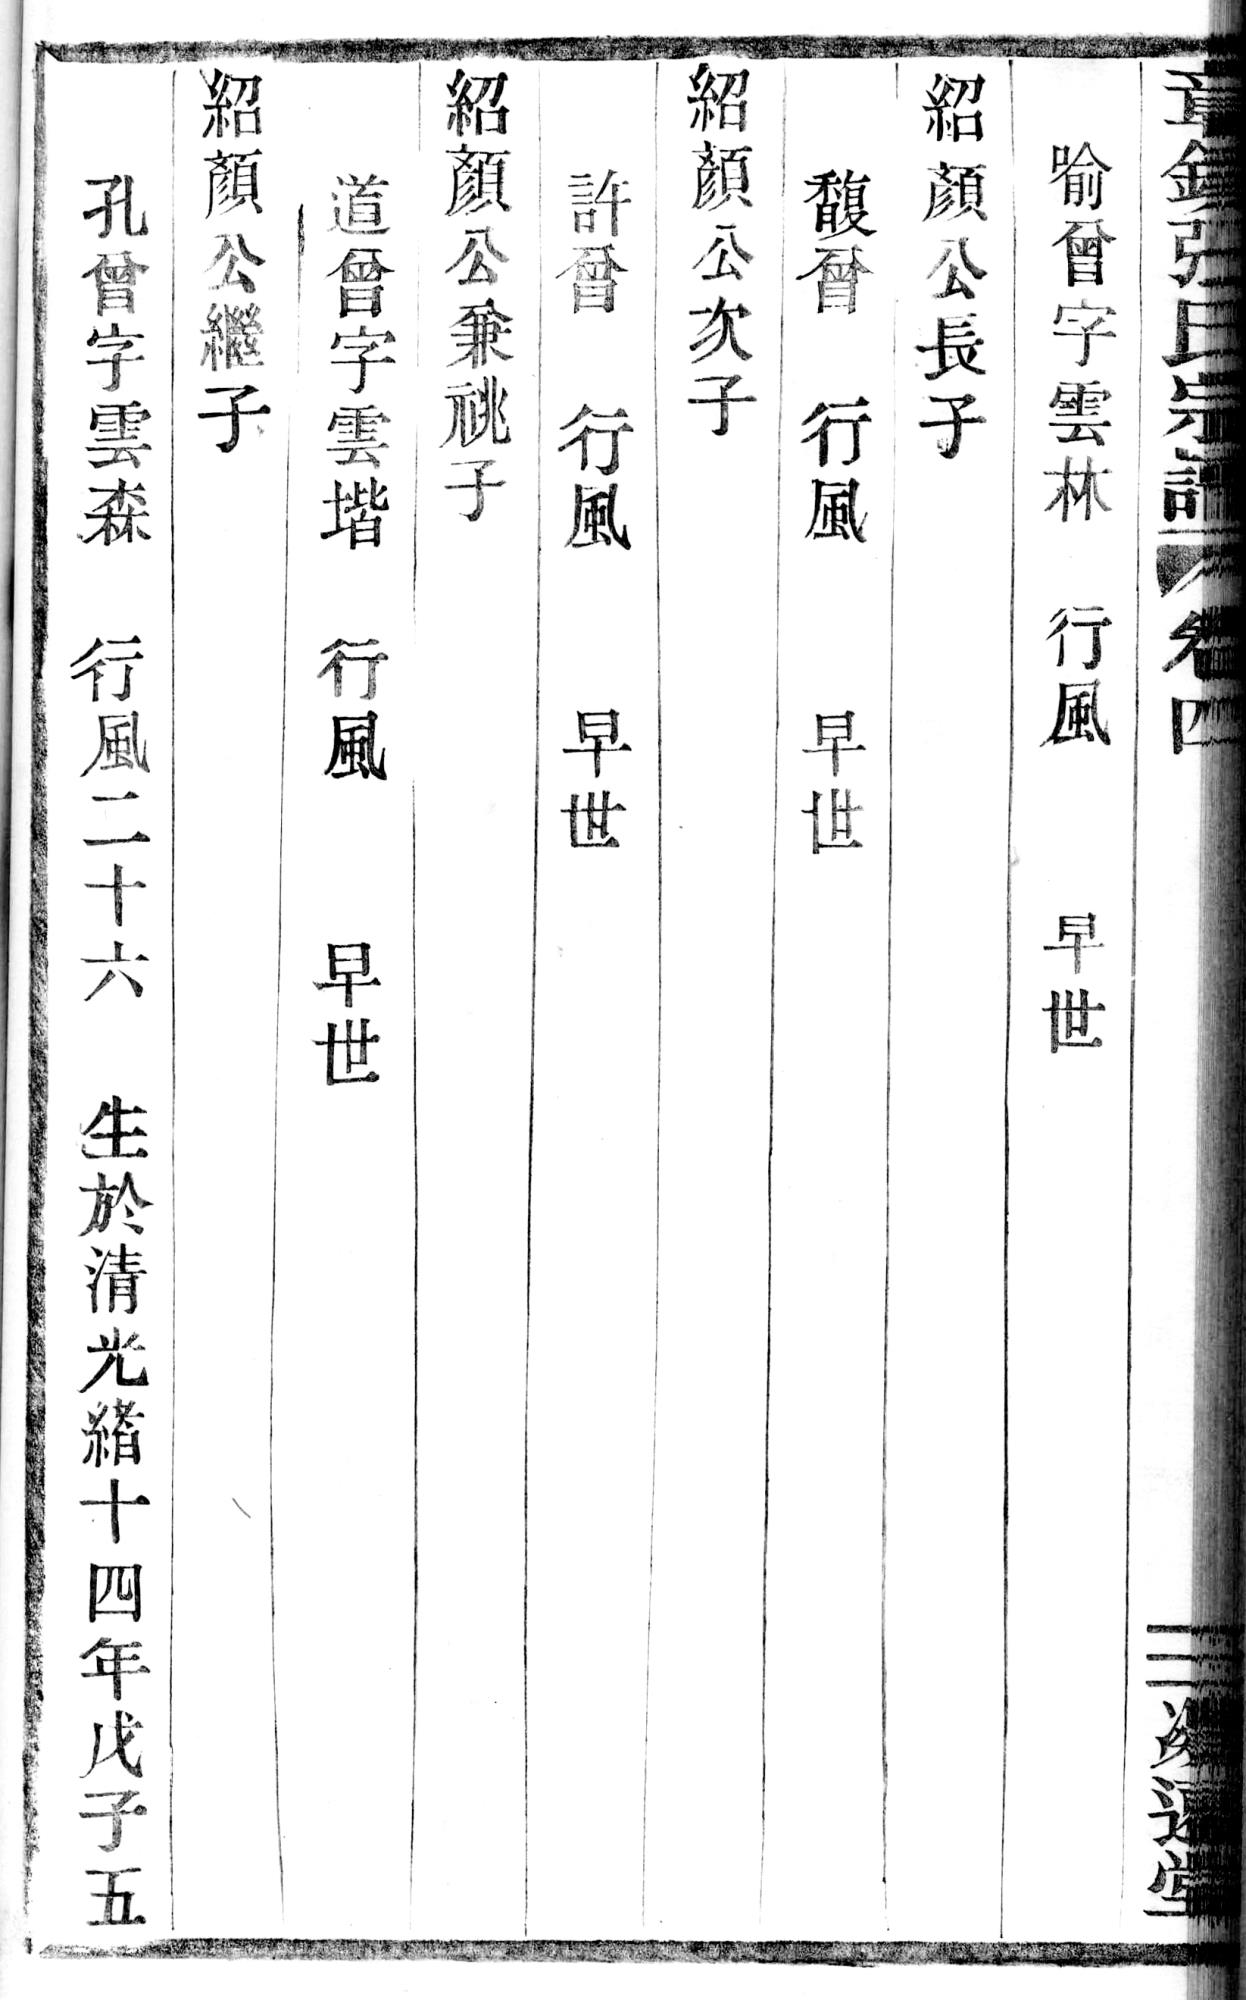 章鎮張氏宗譜 卷四 三 遠堂
喻曾字雲林 行風 早世
紹顏公長子
馥曾 行風 早世
紹顏公次子
許曾 行風 早世
紹顏公兼祧子
道曾字雲堦 行風 早世
紹顏公繼子
孔曾字雲森 行風二十六 生於清光緒十四年戊子五